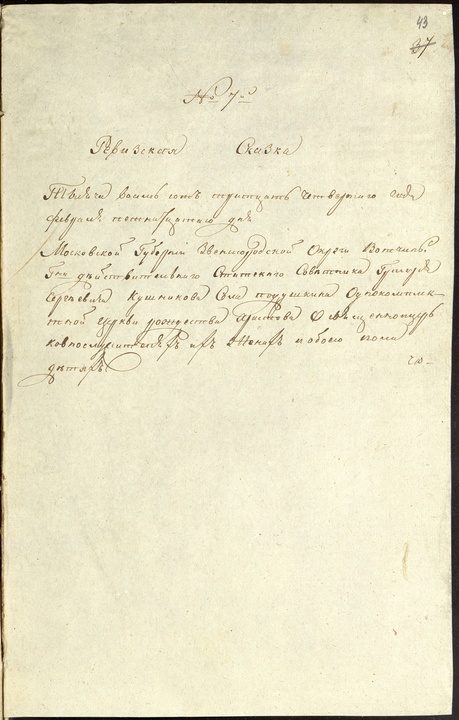 43
37
№ 7й
Ревизская Сказка
Тысяча восемь сотъ тридцать четвертаго года
февраля дня
Московской Губернiи Звенигородской Округи Вотчины
Гна действительнаго Статскаго Советника
Сергеевича Кушникова Села подушкина Однокомплек-
тной церкви рождества Христова О священноцерь
ковнослужителяхъ ихъ женахъ и обоего пола
детяхъ